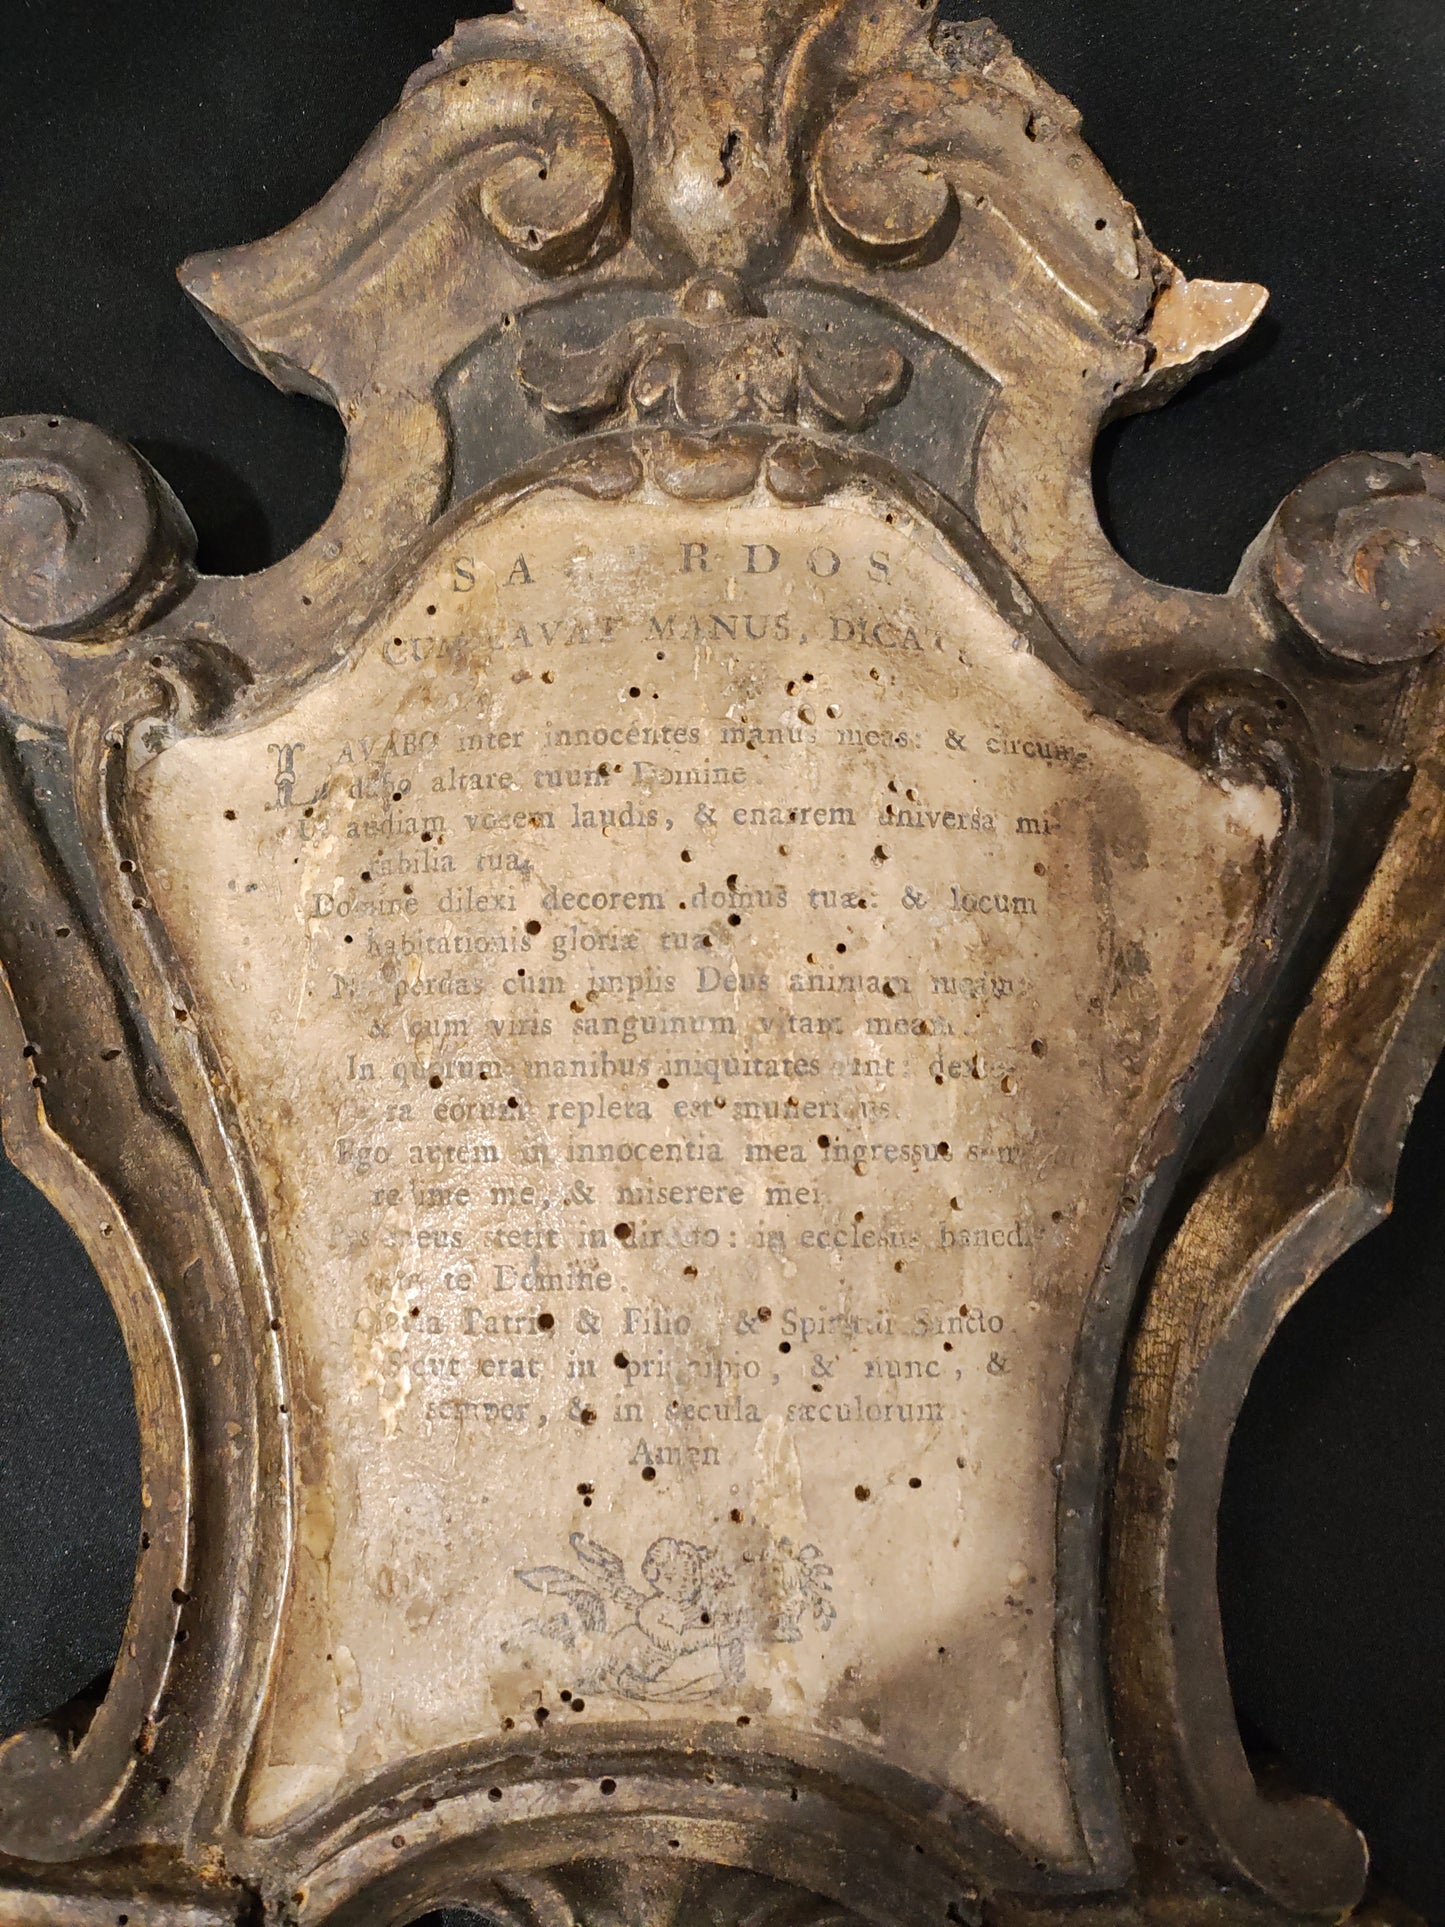 SACERDOS
CUM LAVAT MANUS, DICAT:
LAVABO inter innocentes manus meas: & circum-
dabo altare tuum Domine.
Ut audiam vocem laudis, & enarrem universa mi-
rabilia tua.
Domine dilexi decorem domus tuæ: & locum
habitationis gloriæ tuæ
Ne perdas cum impiis Deus animam meam
& cum viris sanguinum vitam meam.
In quorum manibus iniquitates sunt: dexte-
ra eorum repleta est muneribus.
Ego autem in innocentia mea ingressus sum
redime me, & miserere mei.
Pes meus stetit in directo: in ecclesiis benedi-
te Domine.
Gloria Patri, & Filio & Spiritui Sancto.
Sicut erat in principio, & nunc, &
semper, & in sæcula sæculorum
Amen